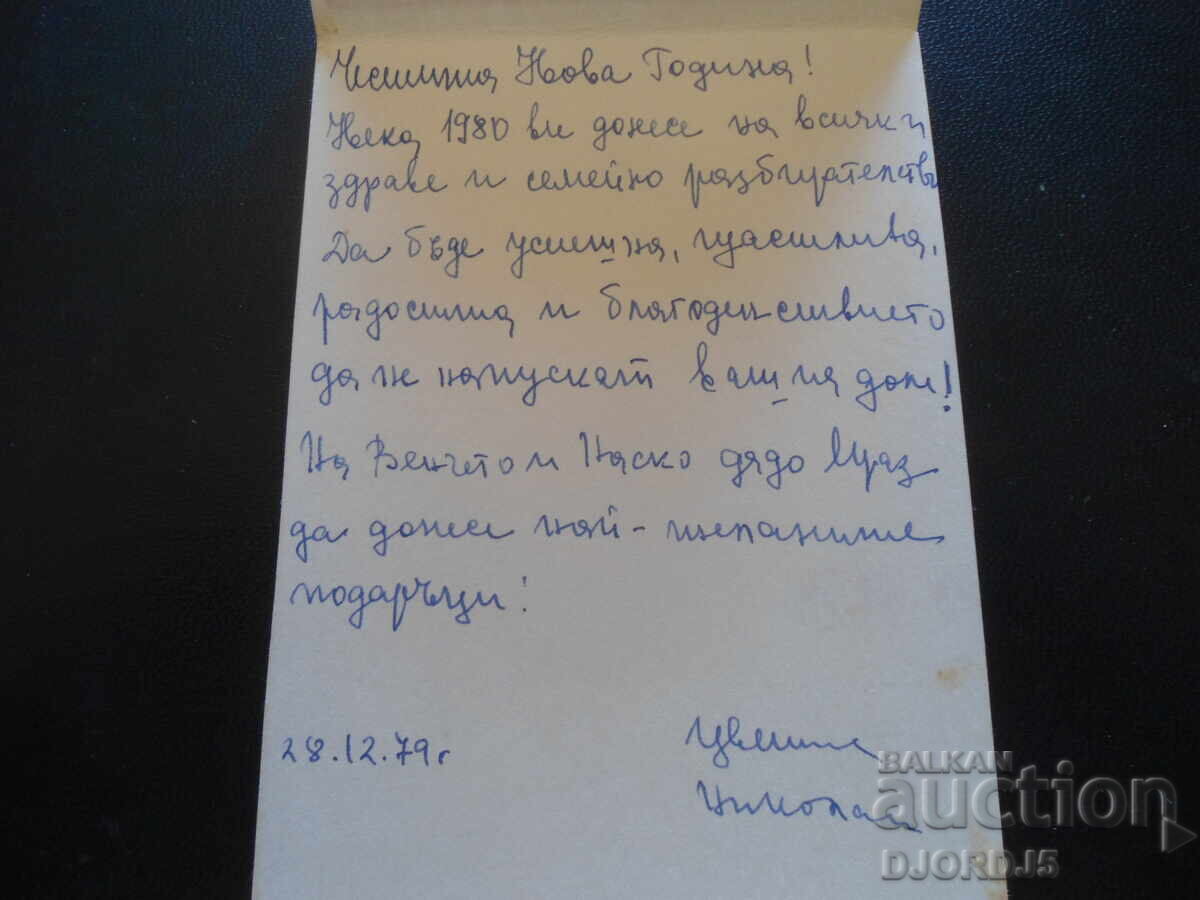 Честита Нова Година!
Нека 1980 ви донесе на всички
здраве и семейно разбирателство
Да бъде успешна, щастлива,
радостна и благоденствието
да не напускат вашия дом!
На Венчето и Наско дядо Мраз
да донесе най-желаните
подаръци!
28.12.79г
Цветина
Николай
BALKAN
auction
DJORDJ5